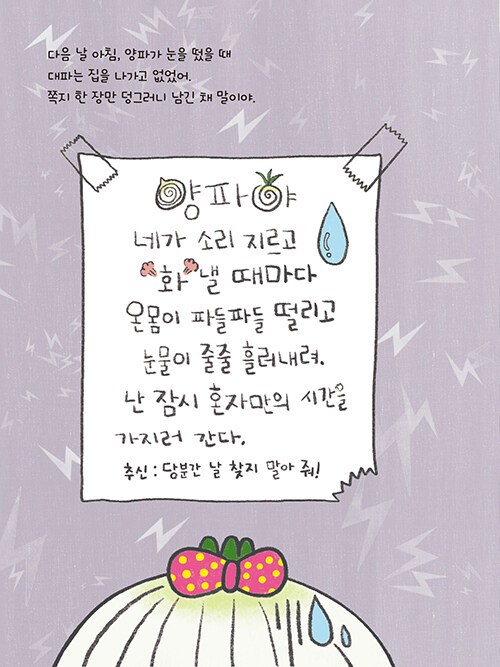 다음 날 아침, 양파가 눈을 떴을 때
대파는 집을 나가고 없었어.
쪽지 한 장만 덩그러니 남긴 채 말이야.
양파야
네가 소리 지르고
"화" 낼 때마다
온몸이 파들파들 떨리고
눈물이 줄줄 흘러내려.
난 잠시 혼자만의 시간을
가지러 간다.
추신 : 당분간 날 찾지 말아 줘!